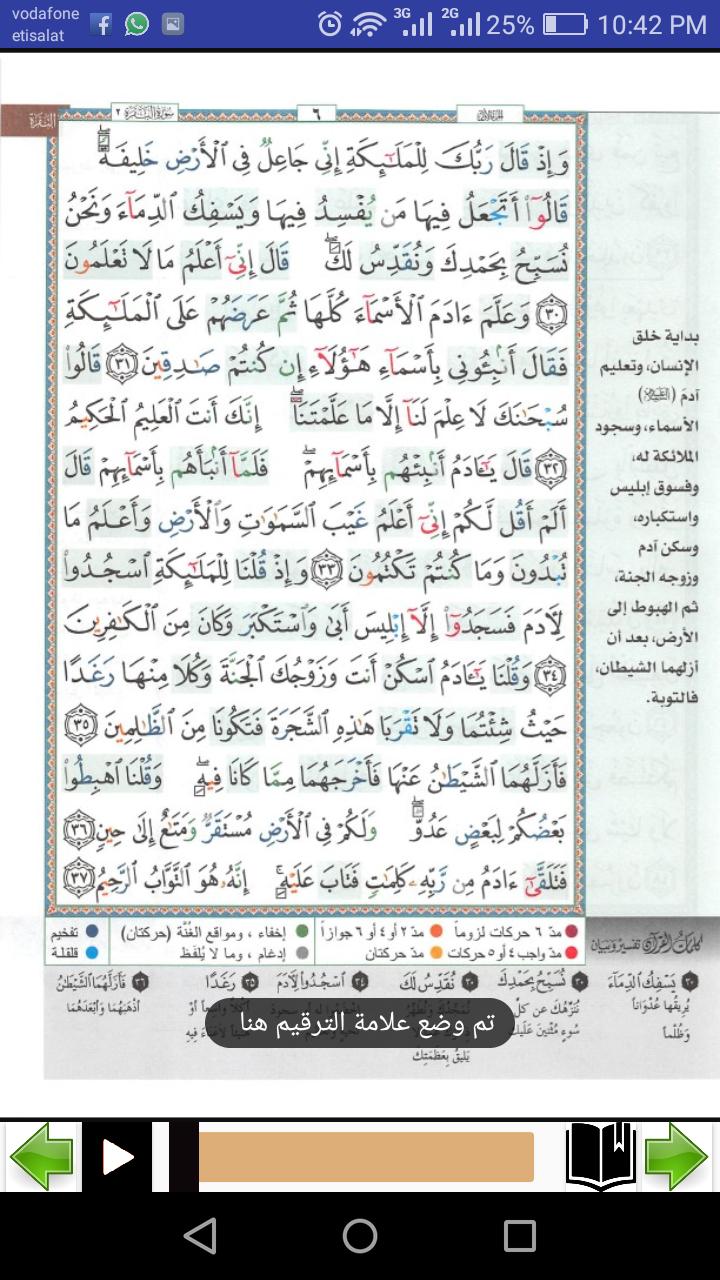 vodafone
etisalat
3G 2G 25% 10:42 PM
سورة البقرة ٢
٦
البقرة
وَإِذْ قَالَ رَبُّكَ لِلْمَلَٰٓئِكَةِ إِنِّى جَاعِلٌ فِى ٱلْأَرْضِ خَلِيفَةً
قَالُوٓا۟ أَتَجْعَلُ فِيهَا مَن يُفْسِدُ فِيهَا وَيَسْفِكُ ٱلدِّمَآءَ وَنَحْنُ
نُسَبِّحُ بِحَمْدِكَ وَنُقَدِّسُ لَكَ قَالَ إِنِّىٓ أَعْلَمُ مَا لَا تَعْلَمُونَ
٣٠ وَعَلَّمَ ءَادَمَ ٱلْأَسْمَآءَ كُلَّهَا ثُمَّ عَرَضَهُمْ عَلَى ٱلْمَلَٰٓئِكَةِ
فَقَالَ أَنۢبِـُٔونِى بِأَسْمَآءِ هَٰٓؤُلَآءِ إِن كُنتُمْ صَٰدِقِينَ ٣١ قَالُوا۟
سُبْحَٰنَكَ لَا عِلْمَ لَنَآ إِلَّا مَا عَلَّمْتَنَآ إِنَّكَ أَنتَ ٱلْعَلِيمُ ٱلْحَكِيمُ
٣٢ قَالَ يَٰٓـَٔادَمُ أَنۢبِئْهُم بِأَسْمَآئِهِمْ فَلَمَّآ أَنۢبَأَهُم بِأَسْمَآئِهِمْ قَالَ
أَلَمْ أَقُل لَّكُمْ إِنِّىٓ أَعْلَمُ غَيْبَ ٱلسَّمَٰوَٰتِ وَٱلْأَرْضِ وَأَعْلَمُ مَا
تُبْدُونَ وَمَا كُنتُمْ تَكْتُمُونَ ٣٣ وَإِذْ قُلْنَا لِلْمَلَٰٓئِكَةِ ٱسْجُدُوا۟
لِءَادَمَ فَسَجَدُوٓا۟ إِلَّآ إِبْلِيسَ أَبَىٰ وَٱسْتَكْبَرَ وَكَانَ مِنَ ٱلْكَٰفِرِينَ
٣٤ وَقُلْنَا يَٰٓـَٔادَمُ ٱسْكُنْ أَنتَ وَزَوْجُكَ ٱلْجَنَّةَ وَكُلَا مِنْهَا رَغَدًا
حَيْثُ شِئْتُمَا وَلَا تَقْرَبَا هَٰذِهِ ٱلشَّجَرَةَ فَتَكُونَا مِنَ ٱلظَّٰلِمِينَ ٣٥
فَأَزَلَّهُمَا ٱلشَّيْطَٰنُ عَنْهَا فَأَخْرَجَهُمَا مِمَّا كَانَا فِيهِ وَقُلْنَا ٱهْبِطُوا۟
بَعْضُكُمْ لِبَعْضٍ عَدُوٌّ وَلَكُمْ فِى ٱلْأَرْضِ مُسْتَقَرٌّ وَمَتَٰعٌ إِلَىٰ حِينٍ ٣٦
فَتَلَقَّىٰٓ ءَادَمُ مِن رَّبِّهِۦ كَلِمَٰتٍ فَتَابَ عَلَيْهِ إِنَّهُۥ هُوَ ٱلتَّوَّابُ ٱلرَّحِيمُ ٣٧
بداية خلق
الإنسان، وتعليم
آدمَ
الأسماء، وسجود
الملائكة له،
وفسوق إبليس
واستكباره،
وسكن آدم
وزوجه الجنة،
ثم الهبوط إلى
الأرض، بعد أن
أزلهما الشيطان،
فالتوبة.
مدّ ٦ حركات لزوماً مدّ ٢ أو ٤ أو ٦ جوازاً إخفاء، ومواقع الغُنَّة (حركتان) تفخيم
مدّ واجب ٤ أو ٥ حركات مدّ حركتان إدغام، وما لا يُلفَظ قلقلة
كلمات القرآن تفسير وبيان
٣٠ يَسْفِكُ الدِّمَاءَ
يُرِيقُها عُدْوَاناً
وَظُلْماً
٣٠ نُسَبِّحُ بِحَمْدِكَ
نُنَزِّهُكَ عن كلِّ
سُوءٍ مُثْنِينَ عَلَيْكَ
٣٠ نُقَدِّسُ لَكَ
يَلِيقُ بِعَظَمَتِكَ
٣٤ اسْجُدُوا لِآدَمَ
٣٥ رَغَدًا
٣٦ فَأَزَلَّهُمَا الشَّيْطَٰنُ
أَذْهَبَهُمَا وَأَبْعَدَهُمَا
تم وضع علامة الترقيم هنا